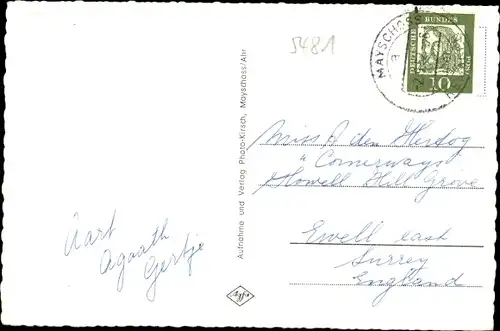 5481
MAYSCHOSS
DEUTSCHE BUNDESPOST
10
Aufnahme und Verlag Photo-Kirsch, Mayschoss/Ahr
Miss A den Hertog
"Cornerways"
Howell Hill Grove
Ewell east
Surrey
England
Aart
Agaath
Gertje